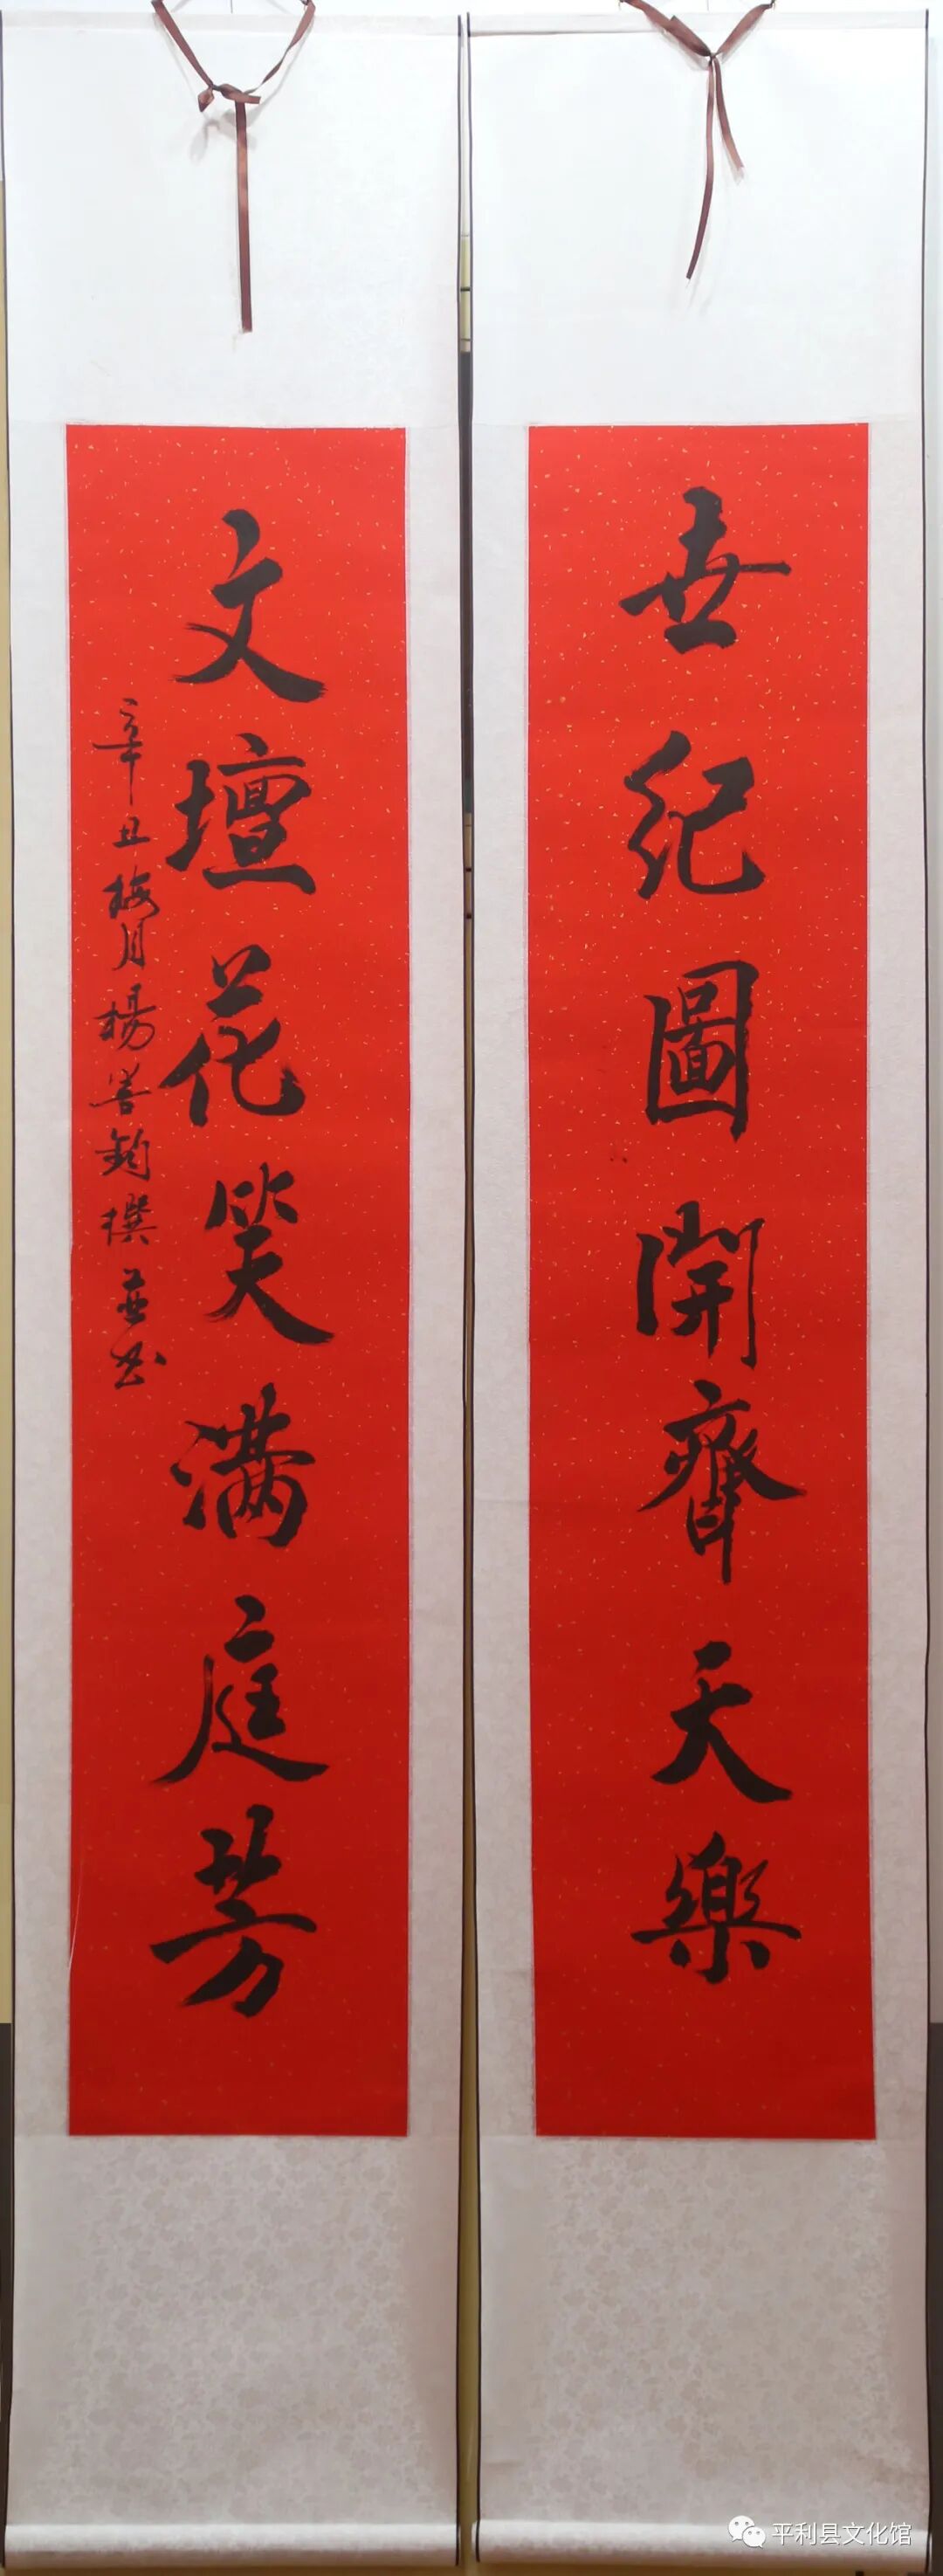 世紀圖開齊天樂
文壇花笑满庭芳
辛丑梅月楊善鈞撰並书
平利县文化馆